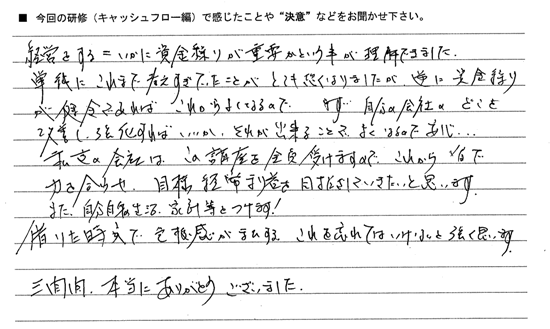 ■ 今回の研修（キャッシュフロー編）で感じたことや“決意”などをお聞かせ下さい。
経営をする＝いかに資金繰りが重要かという事が理解できました。
単純にこれまで考えすぎていたことがとても恐くなりましたが 単に資金繰り
が健全であれば これからよくなるので まず 自分の会社の どこを
改善し、強化すればいいか、それが出来ることで、よくなるので
私共の会社は この講座を全員受けますので、これから 皆で
力を合わせ、目標経常利益を目指していきたいと思います。
また、自分自身生活、家計簿をつけます!
借りた時点で 危機感が する。これを忘れてはいけないと強く思います
三日間、本当にありがとうございました。